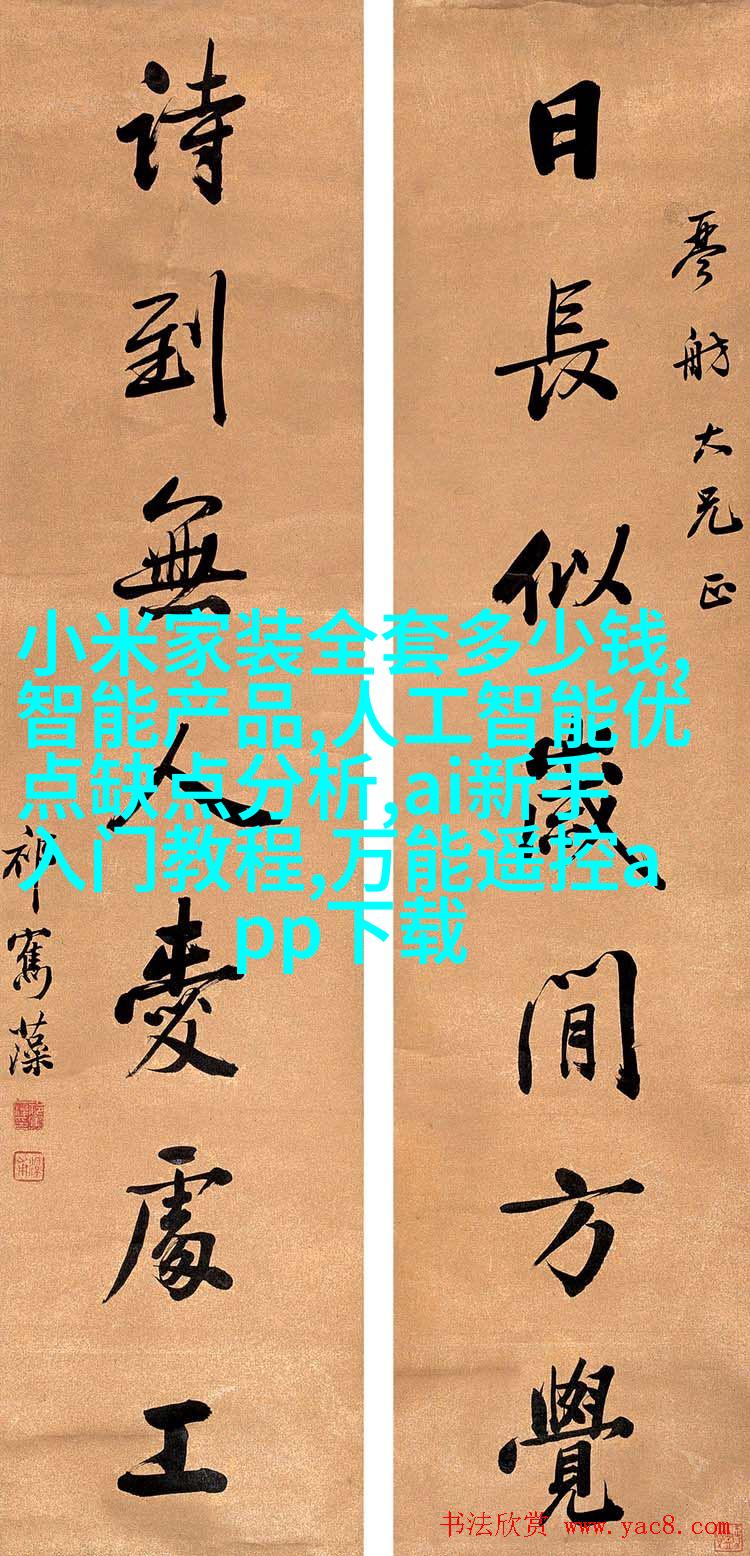 琴舫大兄正
日長似歲閒方覺
詩到無人愛處工
祁寯藻
小米家装全套多少钱,
智能产品,人工智能优
点缺点分析,ai新手
入门教程,万能遥控a
pp下载
书法欣赏 www.yac8.com